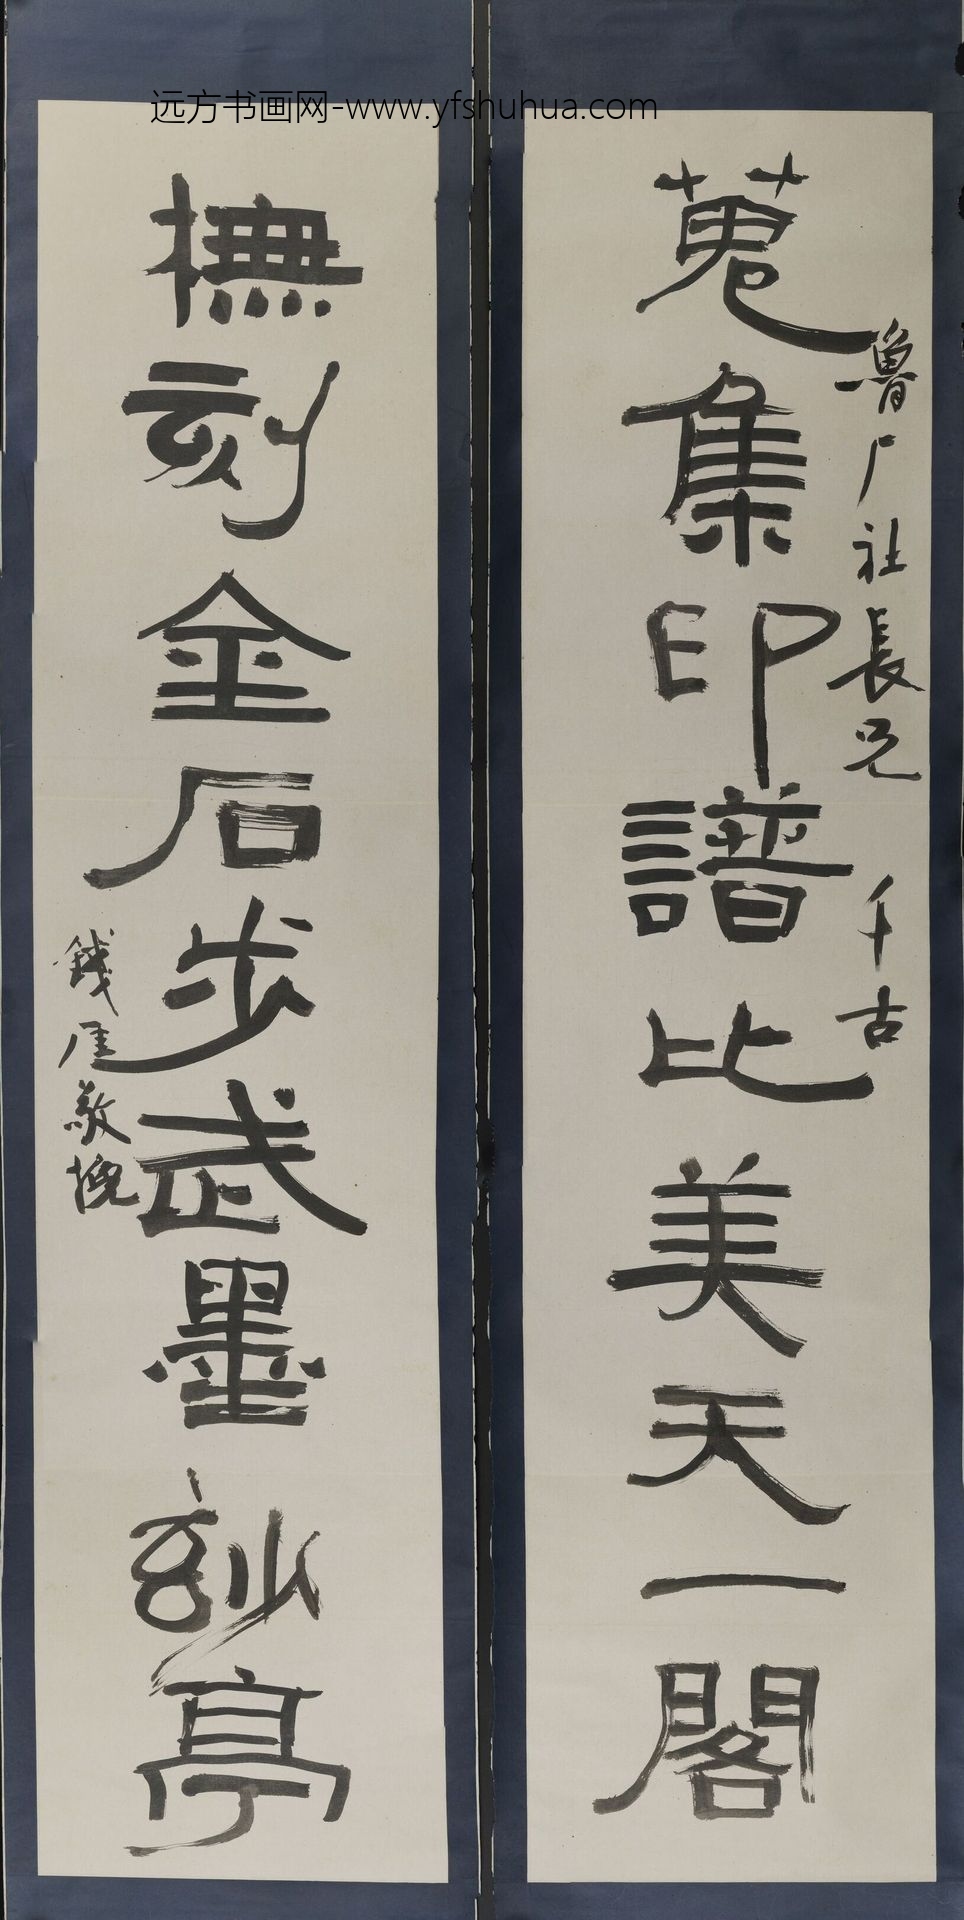 远方书画网-www.yfshuhua.com
蒐集印譜比美天一閣
魯厂社長兄 千古
橅刻金石步武墨玅亭
錢厓敬挽